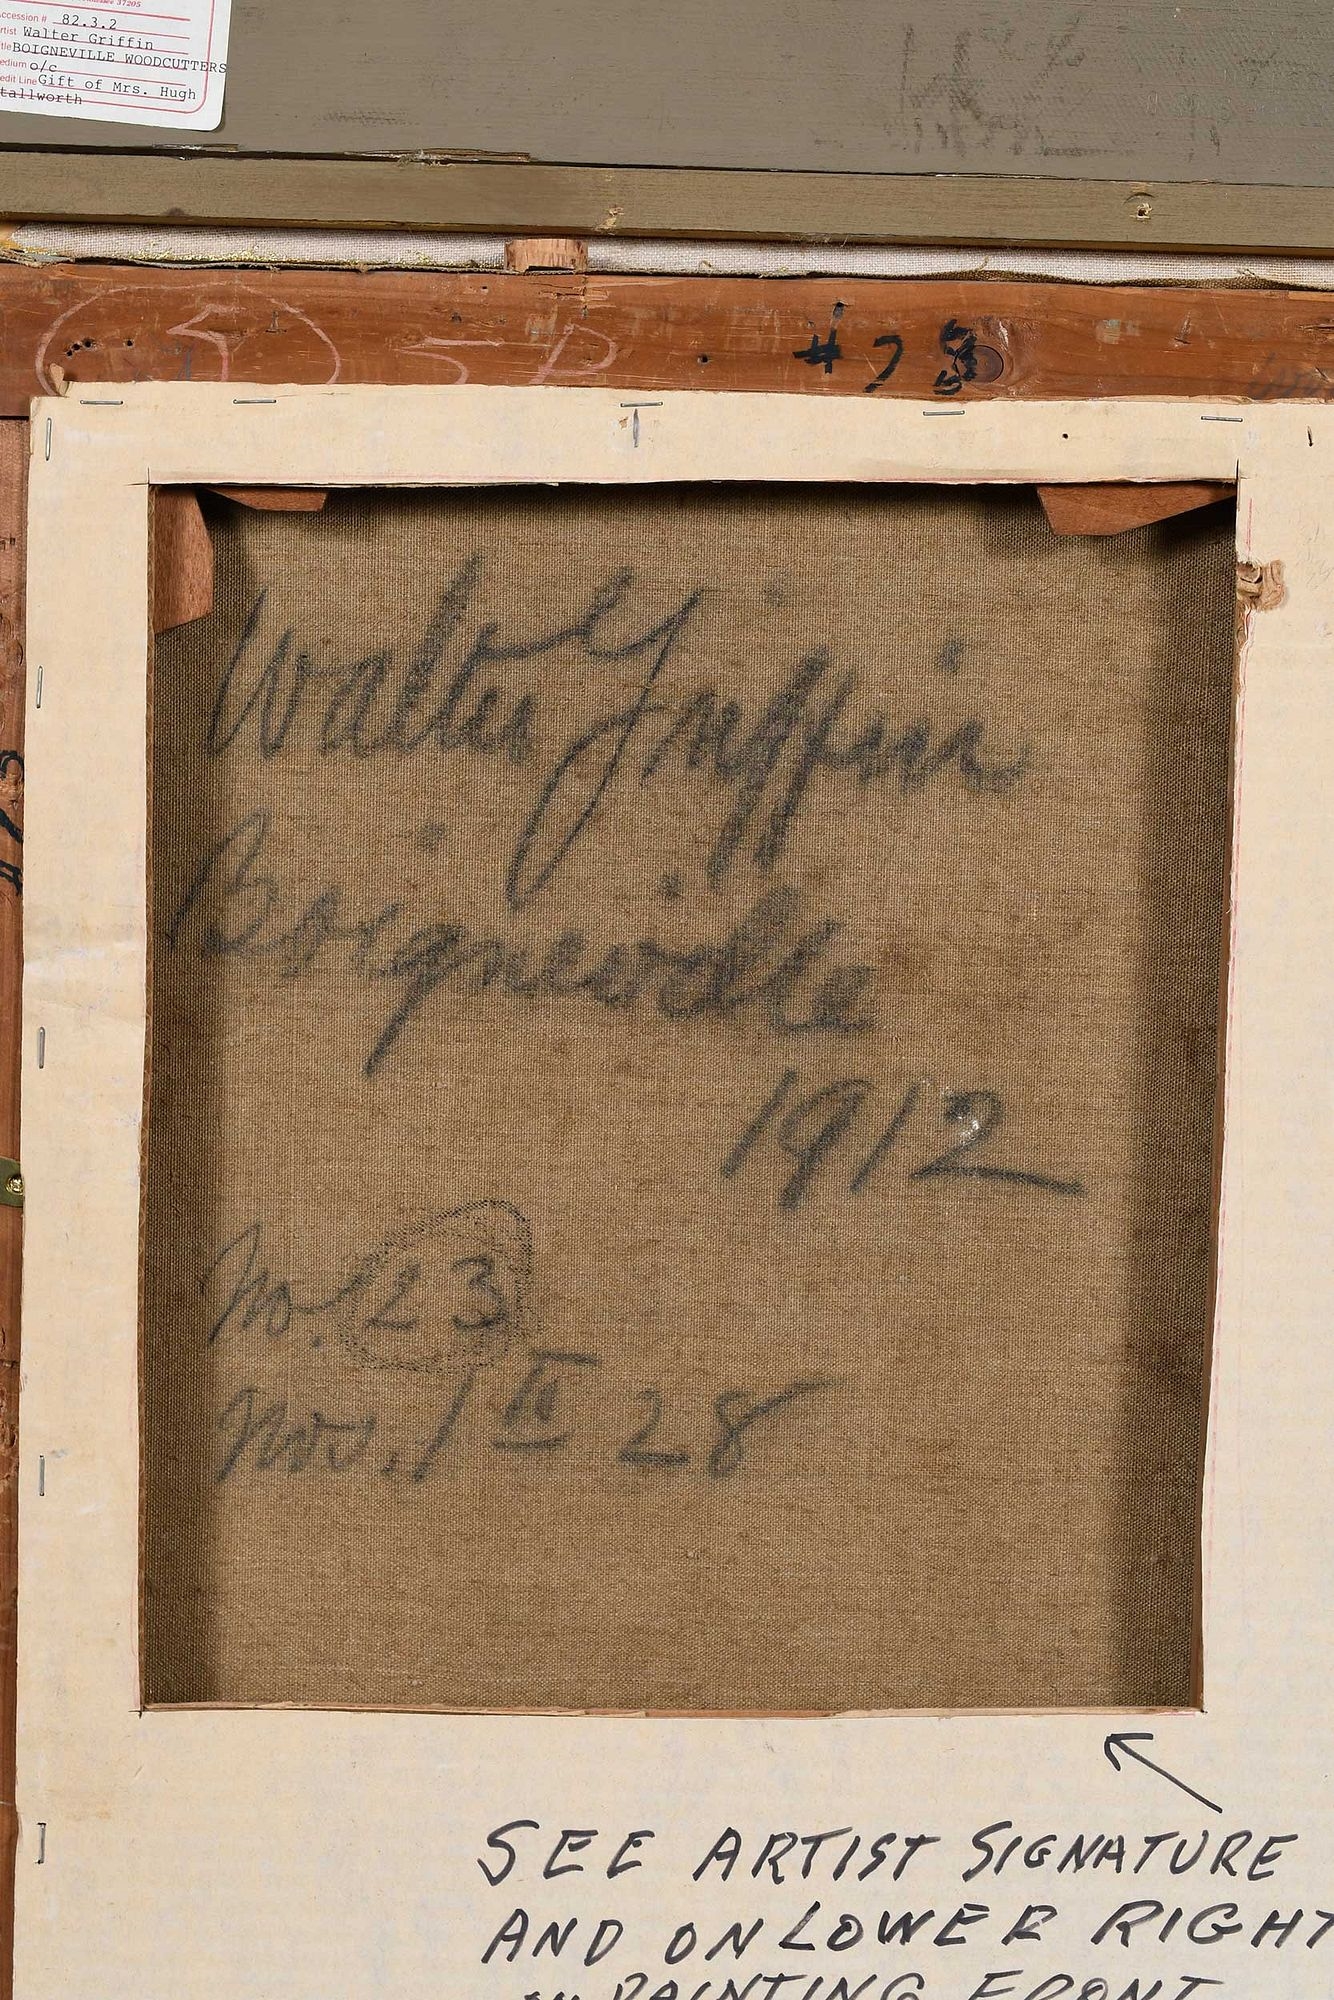 37205
Accession # 82.3.2
Walter Griffin
BOIGNEVILLE WOODCUTTERS
o/c
Gift of Mrs. Hugh
tallworth
5 5 P #78
Walter Griffin
Boigneville
1912
No. 23
Nov. 1 II 28
SEE ARTIST SIGNATURE
AND ON LOWER RIGHT
PAINTING FRONT